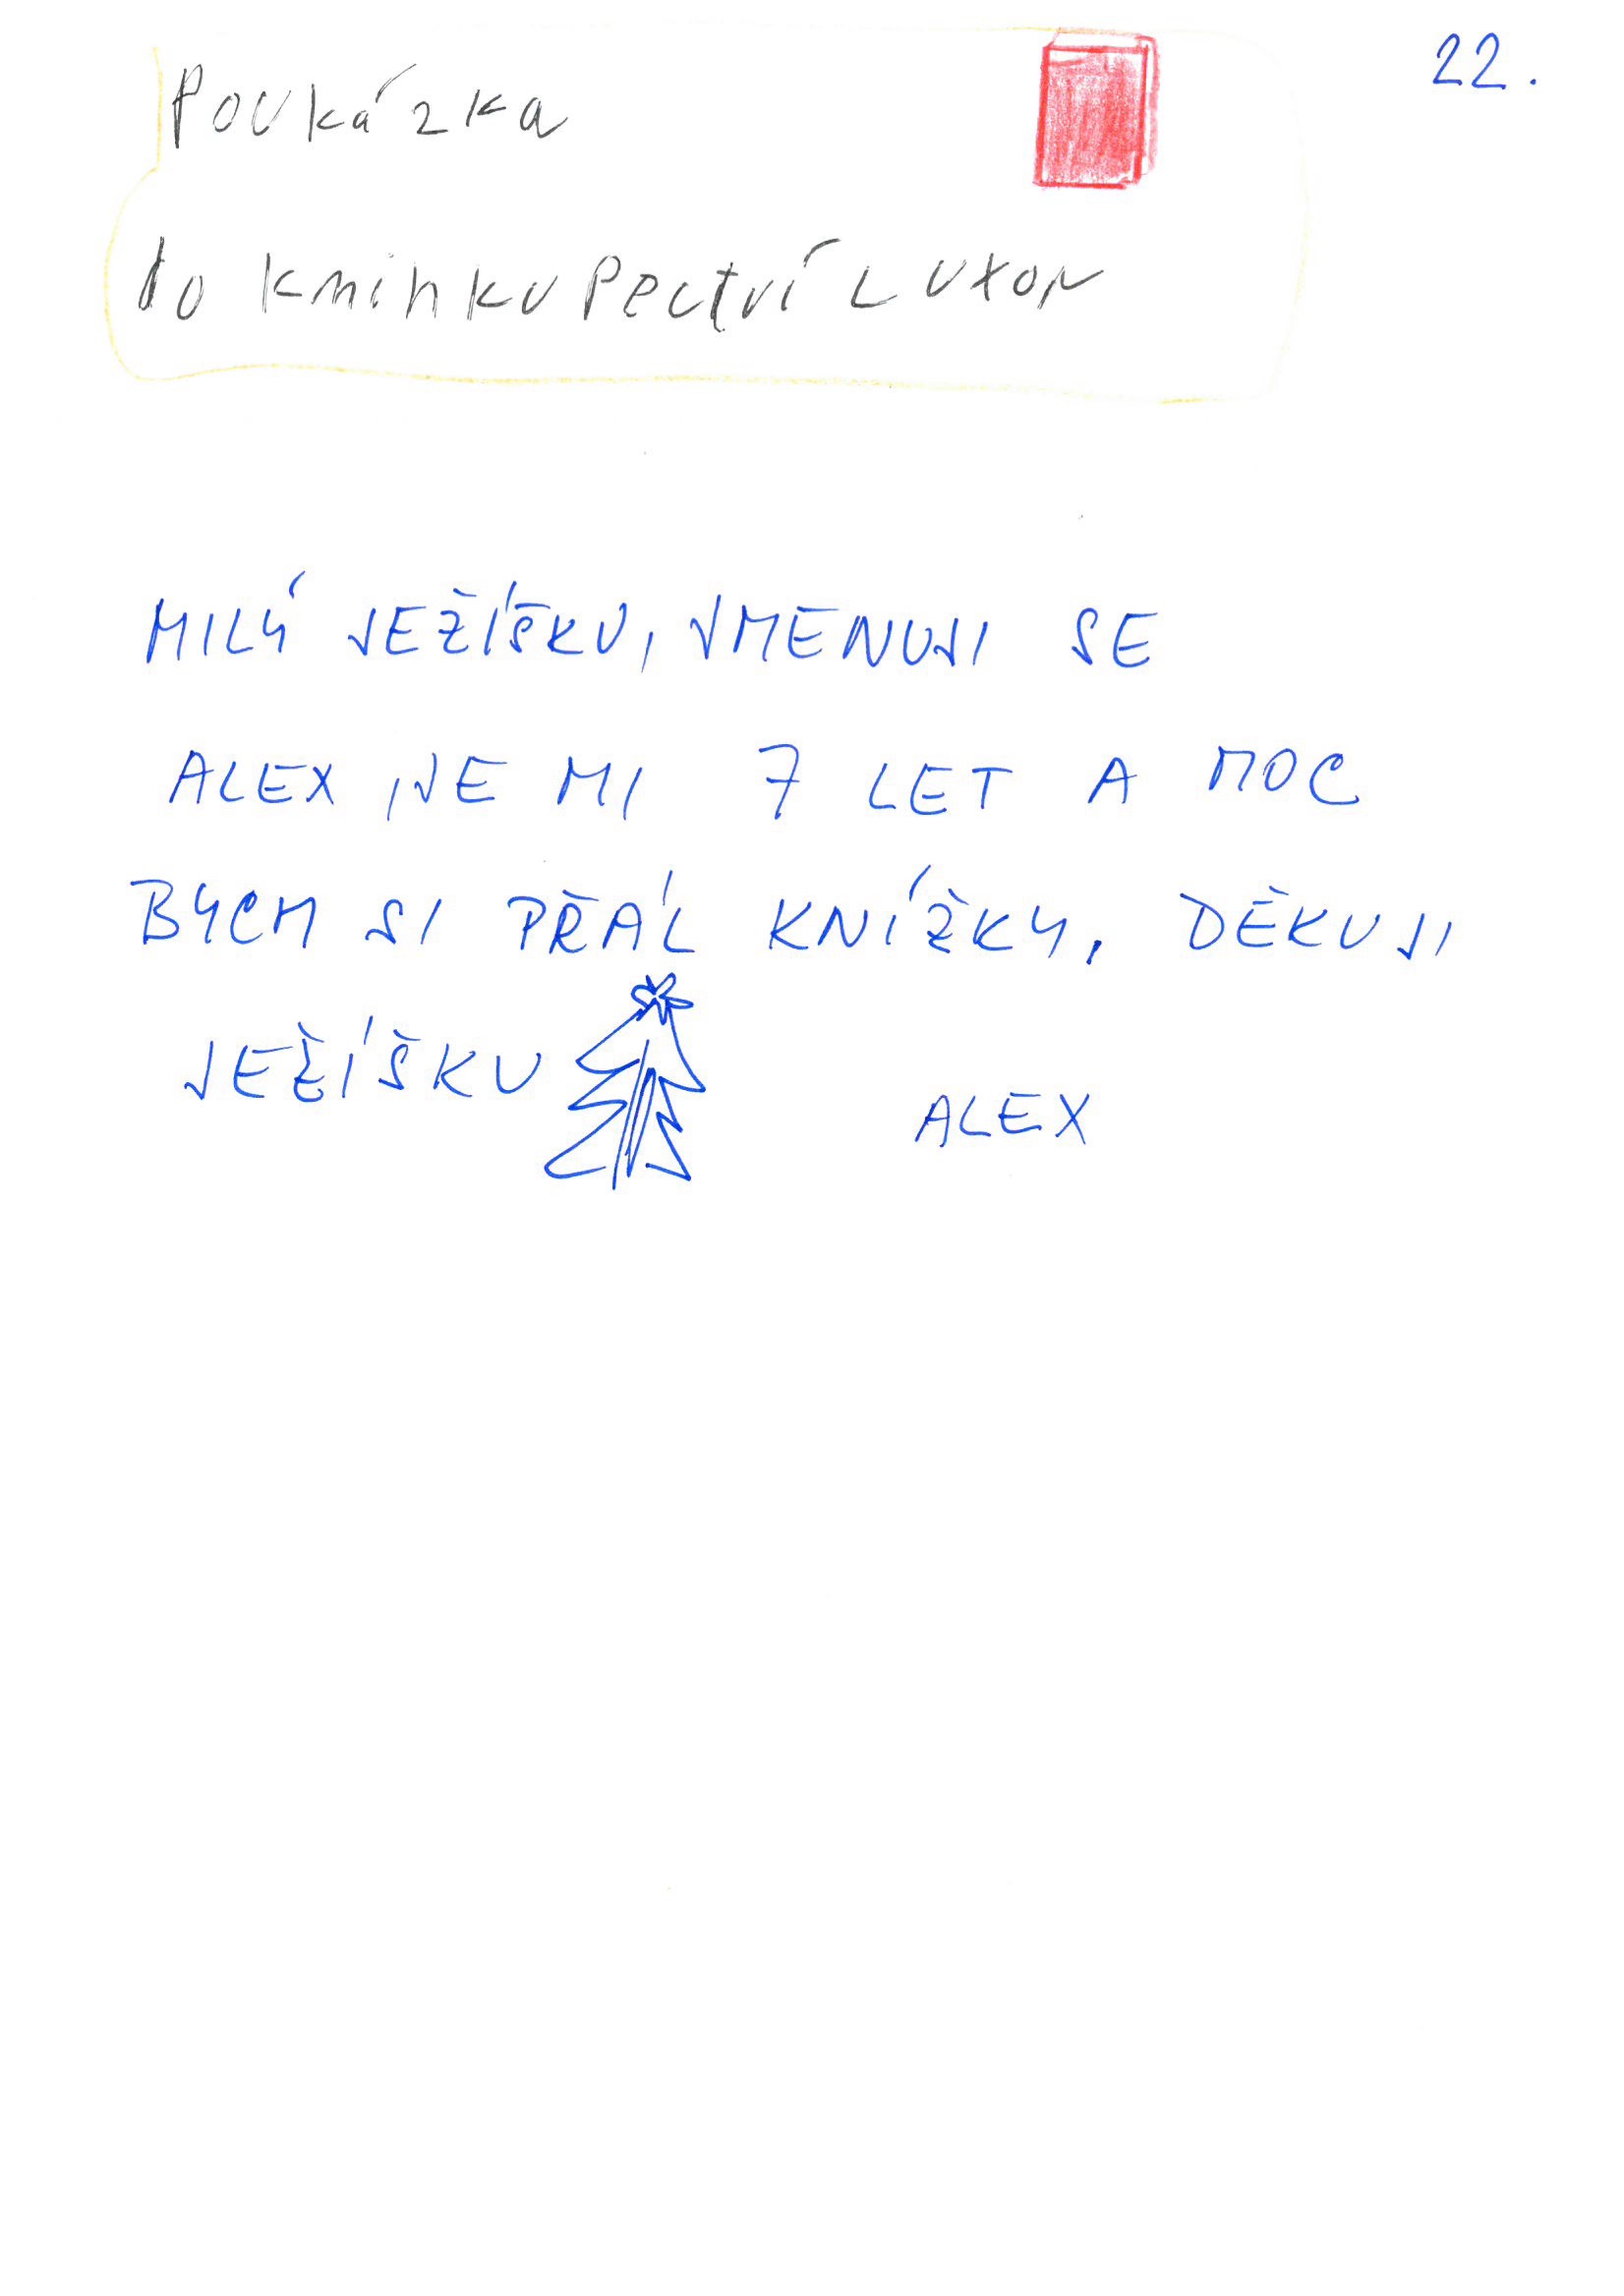 22.
Poukázka
do kninkupectví Luxor
MILÝ JEŽÍŠKU, JMENUJI SE
ALEX JE MI 7 LET A MOC
BYCH SI PŘÁL KNÍŽKY. DĚKUJI
JEŽÍŠKU
ALEX